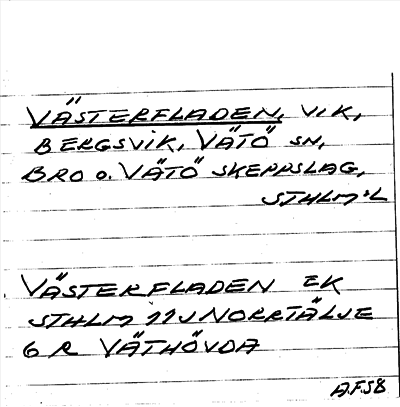 VÄSTERFLADEN, VIK,
BERGSVIK, VÄTÖ SN,
BRO o. VÄTÖ SKEPPSLAG,
STHLM:L
VÄSTERFLADEN EK
STHLM 11J NORRTÄLJE
6 R VÄTHÖVDA
AFS8